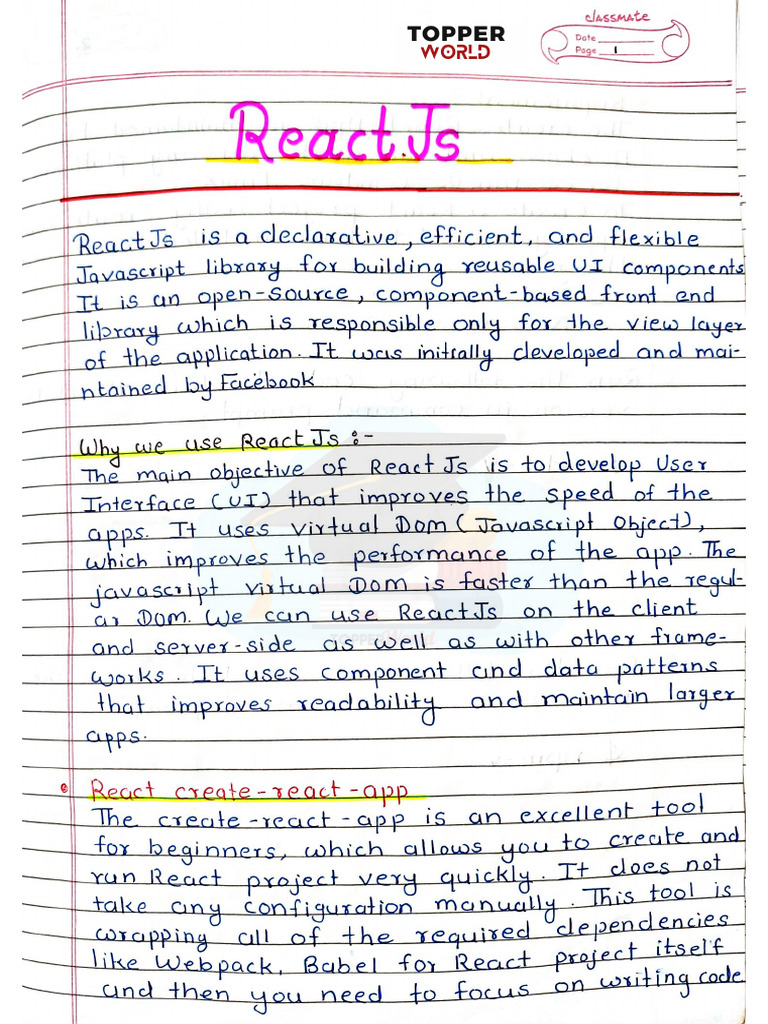 TOPPER
WORLD
classmate
Date
Page 1
React.Js
ReactJs is a declarative, efficient, and flexible
Javascript library for building reusable UI components
It is an open-source, component-based front end
library which is responsible only for the view layer
of the application. It was initially developed and mai-
ntained by Facebook
Why we use ReactJs :-
The main objective of ReactJs is to develop User
Interface (UI) that improves the speed of the
apps. It uses virtual Dom (Javascript Object),
which improves the performance of the app. The
javascript virtual Dom is faster than the regul-
ar Dom. We can use ReactJs on the client
and server-side as well as with other frame-
works. It uses component and data patterns
that improves readability and maintain larger
apps.
React create-react-app
The create-react-app is an excellent tool
for beginners, which allows you to create and
run React project very quickly. It does not
take any configuration manually. This tool is
wrapping all of the required dependencies
like Webpack, Babel for React project itself
and then you need to focus on writing code